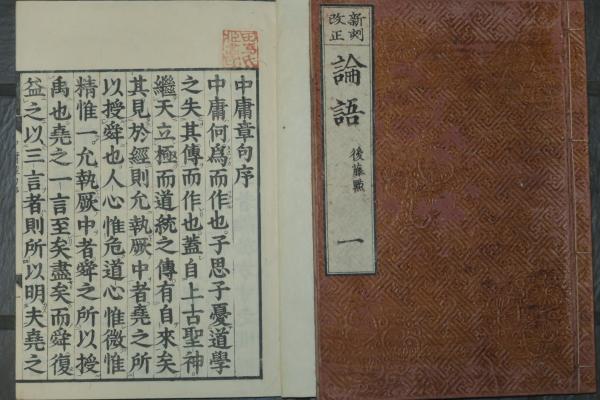 新刻
改正
論語
後藤點
一
中庸章句序
中庸何爲而作也子思子憂道學
之失其傳而作也蓋自上古聖神
繼天立極而道統之傳有自來矣
其見於經則允執厥中者堯之所
以授舜也人心惟危道心惟微惟
精惟一允執厥中者舜之所以授
禹也堯之一言至矣盡矣而舜復
益之以三言者則所以明夫堯之